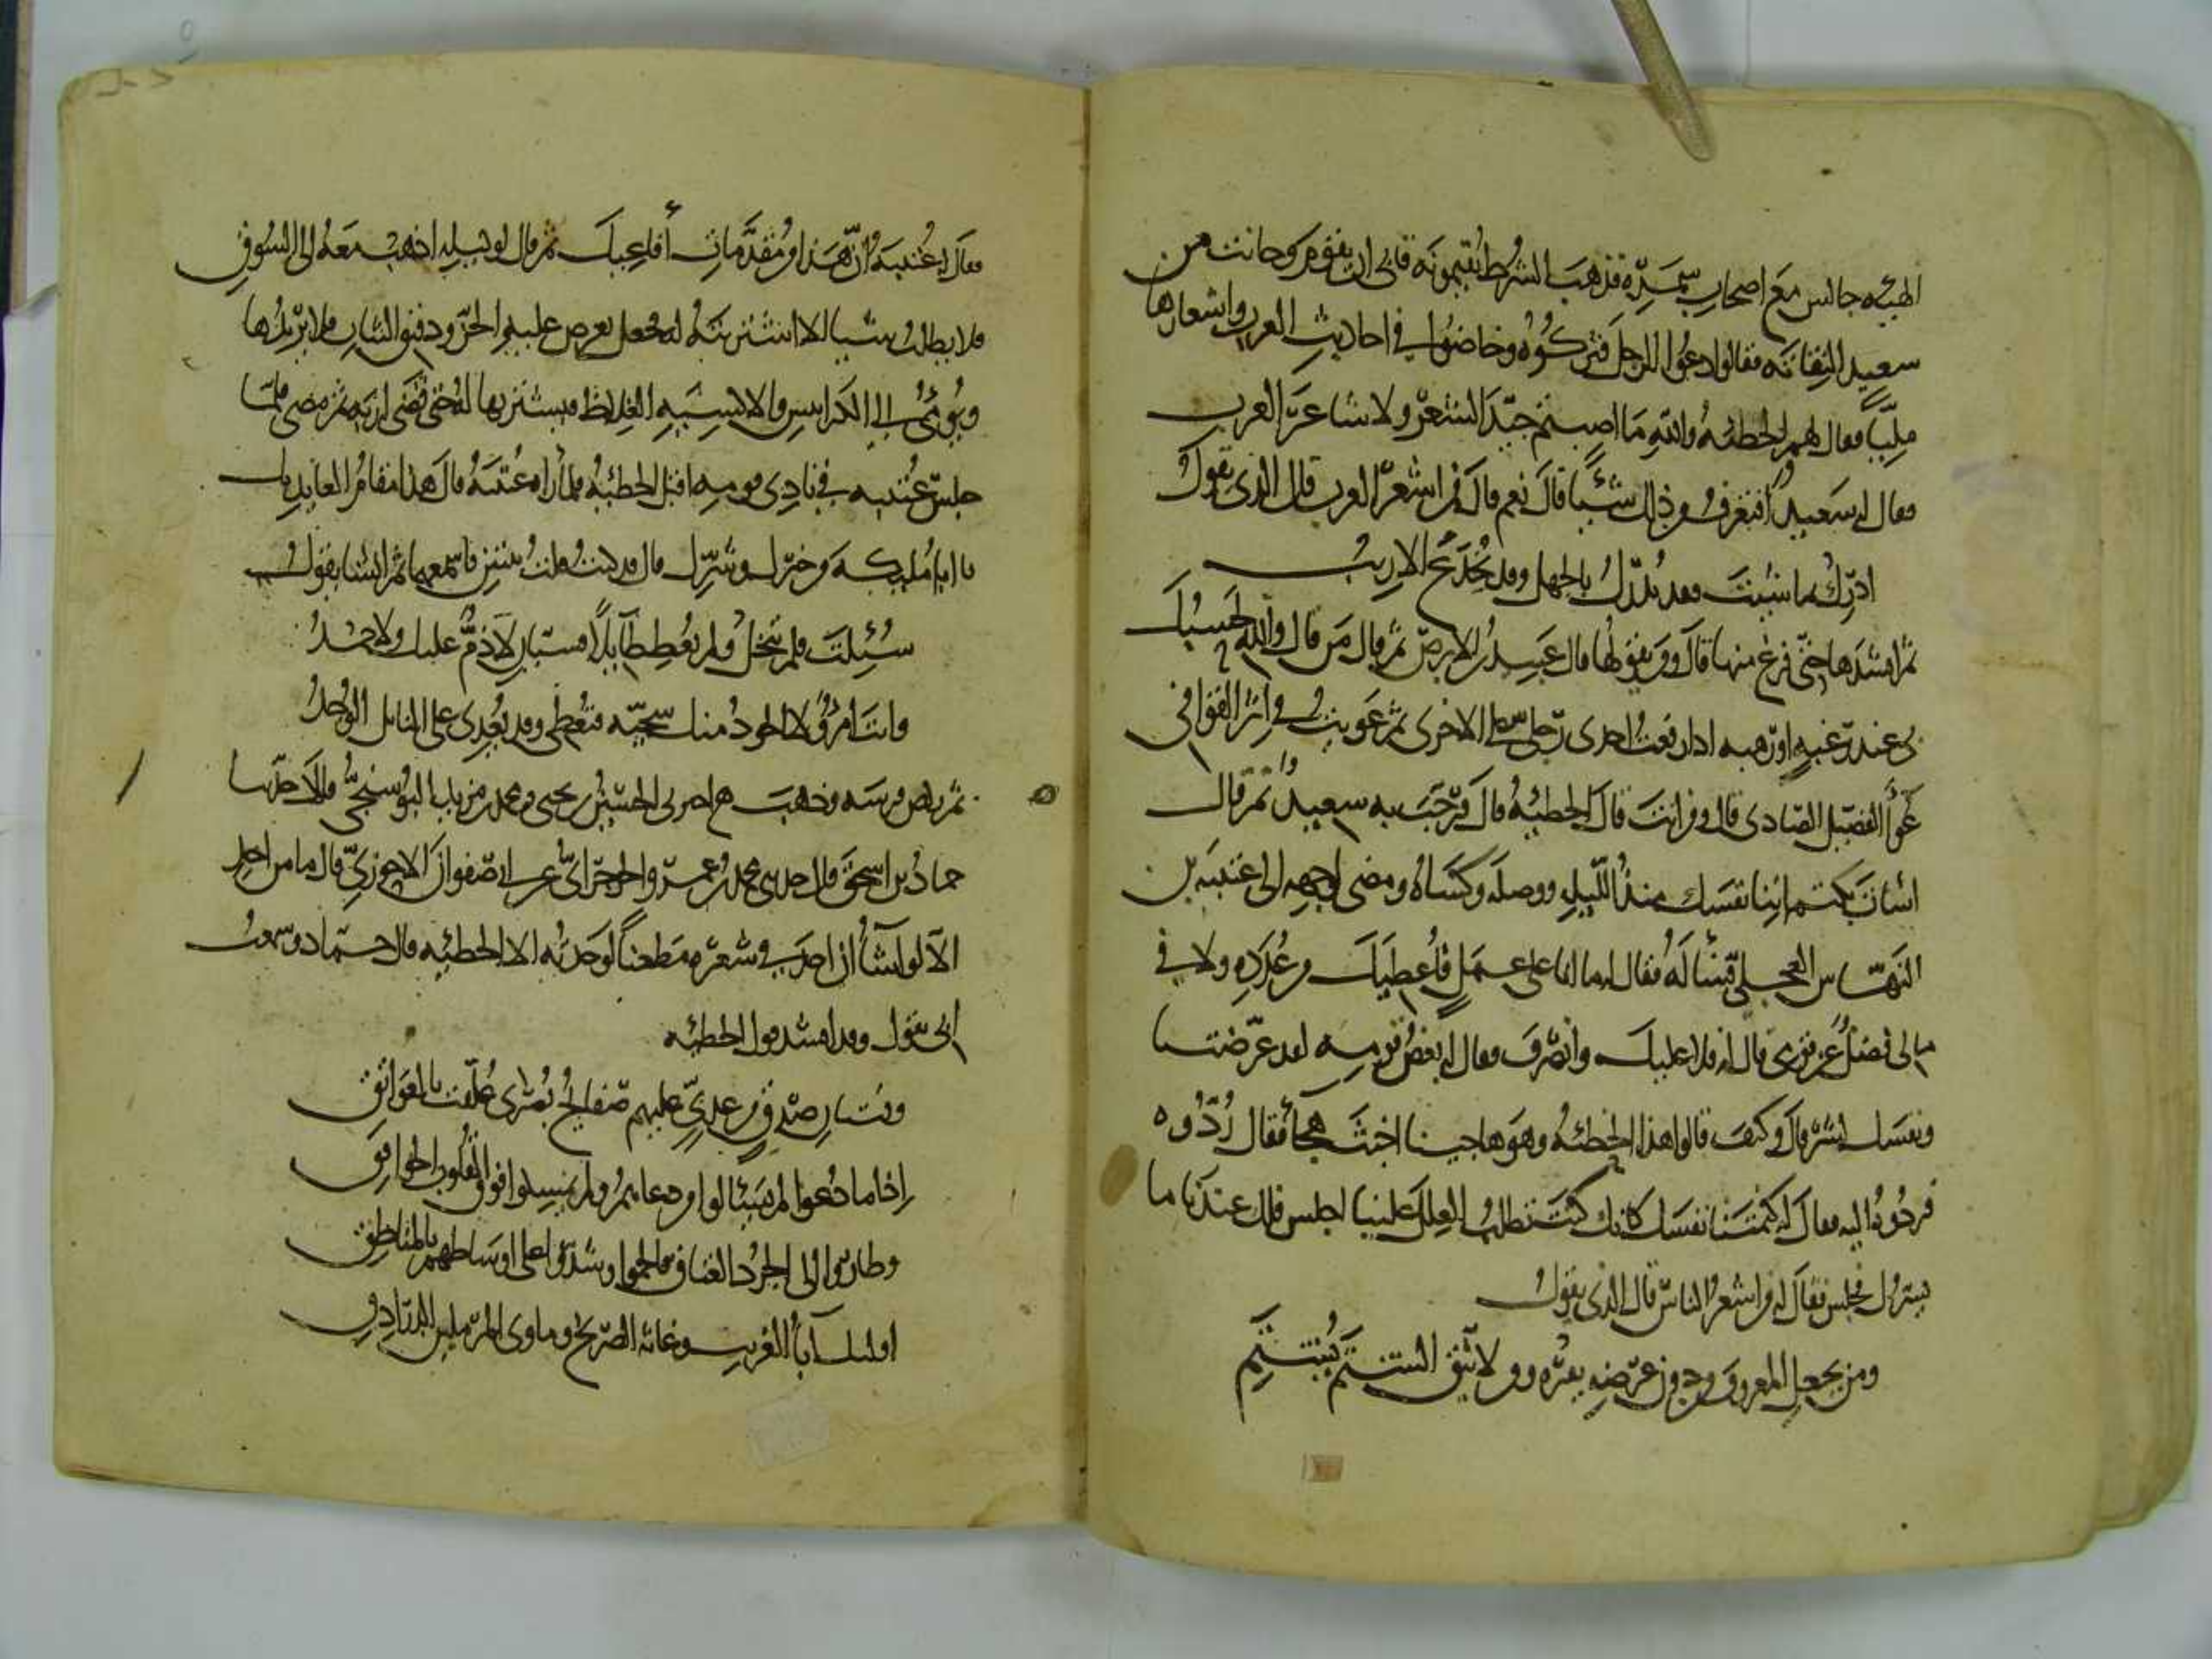 الهيئه جالس مع اصحاب سمره فذهب الشرط يقيمونه فابى ان يقوم وحانت من
سعيد التفاته فقال دعوا الرجل فتركوه وخاضوا في احاديث العرب واشعارها
مليا فقال لهم الحطئه والله ما اصبتم جيد الشعر ولا شاعر العرب
فقال له سعيد أفتعرف من ذلك شيئا قال نعم قال فمن اشعر العرب قال الذي يقول
ادرك ما شيت فقد يدرك بالجهل وقد يخدع الاريب
ثم انشدها حتى فرغ منها قال ومن يقولها قال عبيد بن الابرص ثم قال من قال والله لحسبك
بي عند رغبه او رهبه اذا رفعت احدى رجلي على الاخرى ثم عويت في اثر القوافي
عواء الفصيل الصادي قال ومن انت قال الحطيئه قال فرحب به سعيد ثم قال
اسات بكتماننا نفسك منذ الليله ووصله وكساه ومضى لوجهه الى عتيبه بن
النهاس العجلي فسأله فقال له ما انا على عمل فأعطيك من عدده ولا في
مالي فضل عن قومي قال له فلا عليك وانصرف فقال له بعض قومه لقد عرضتنا
ونفسك للشر قال وكيف قالوا هذا الحطئه وهو هاجينا اخبث هجاء فقال ردوه
فردوه اليه فقال له كتمتنا نفسك كانك كنت تطلب العلل علينا اجلس فلك عندنا ما
يسرك فجلس فقال له من اشعر الناس قال الذي يقول
ومن يجعل المعروف من دون عرضه يفره ومن لا يتق الشتم يشتم
فقال له عتيبه ان هذا من مقدمات أفاعيك ثم قال لوكيله اذهب معه الى السوق
فلا يطلب شيا الا اشتريته له فجعل يعرض عليه الخز ورقيق الثياب فلا يريدها
ويومئ الى الكرابيس والاكسيه الغلاظ فيشتريها له حتى قضى اربه ثم مضى فلما
جلس عتيبه في نادي قومه اقبل الحطئيه فلما رآه عتيبه قال هذا مقام العايذ بك
يا ابا مليكه من خيرك وشرك قال قد كنت قلت بيتين فاسمعهما ثم انشا يقول
سئلت فلم تبخل ولم تعط طآيلا فسيان لا ذم عليك ولا حمد
وانت امرؤ لا الجود منك سجيه فتعطي وقد يعدي على النايل الوجد
ثم ركض فرسه وذهب اخبرني الحسين بن يحيى ومحمد بن مزيد البوسنجي قالا حدثنا
حماد بن اسحق قال حدثني محمد بن عمرو الجرجرائي عن ابي صفوان الاحوزي قال ما من احد
الا لو أشأ ان اجد في شعره مطعنا لوجدته الا الحطئيه قال حماد وسمعت
ابي يقول وقد انشد قول الحطئه
وفتيان صدق من عدي عليهم صفايح بصرى علقت بالعواتق
اذا ما دعوا لم يسئالوا من دعاهم ولم يمسكوا فوق القلوب الخوافق
وطاروا الى الجرد العتاق فالجموا وشدوا على اوساطهم بالمناطق
اوليك آبأ الغريب وغاثه الصريخ وماوى المرملين الدرادق